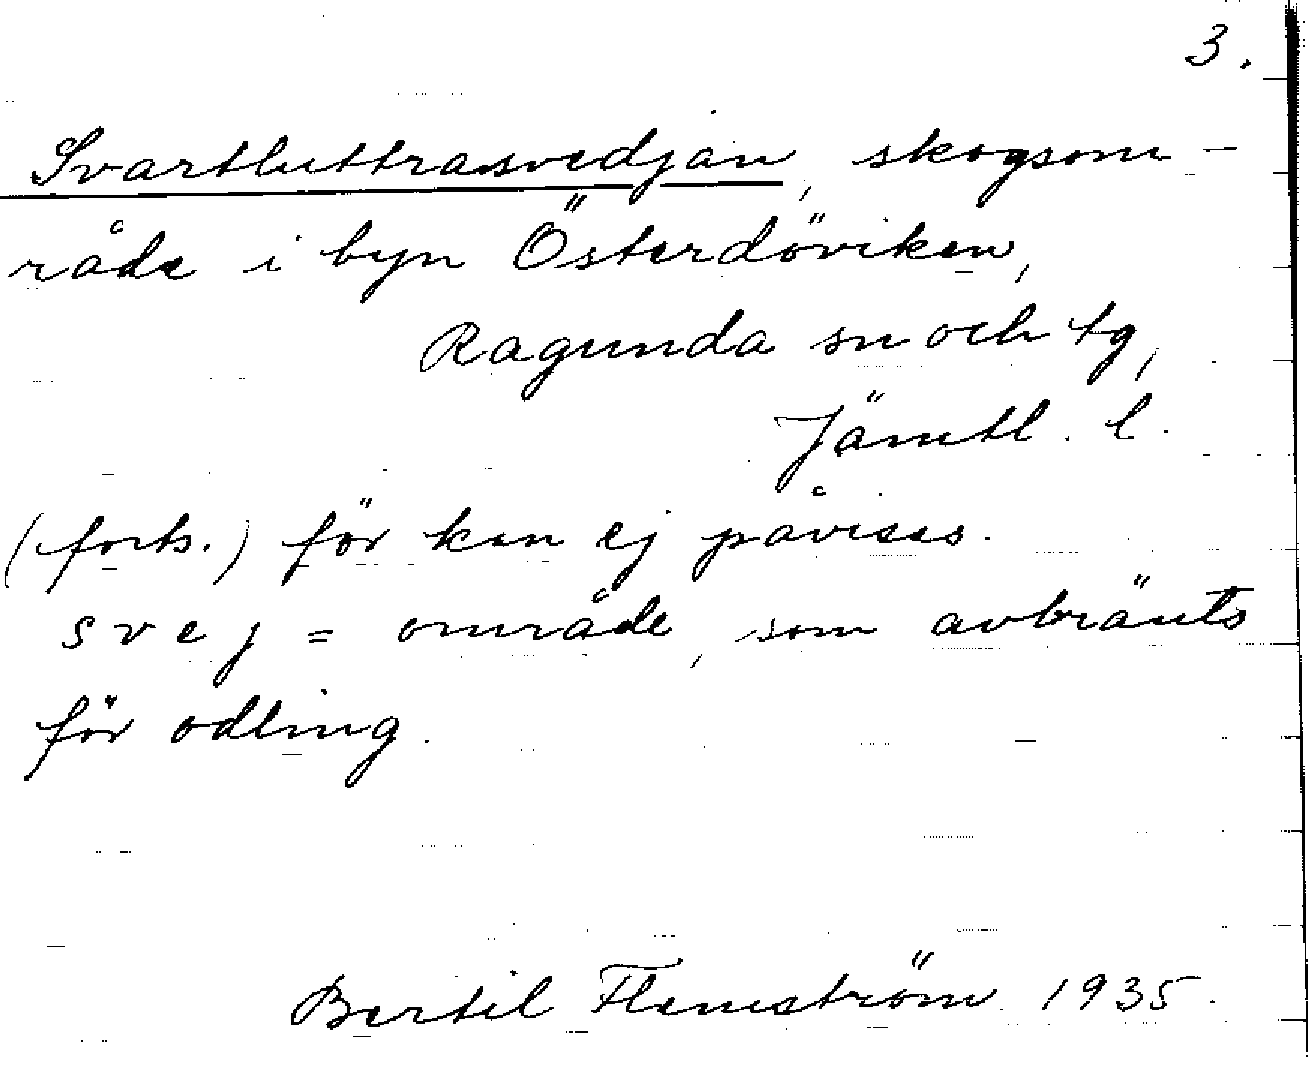 3.
Svartluttrasvedjan, skogsom-
råde i byn Österdöviken,
Ragunda sn och tg,
Jämtl. l.
(forts.) för kan ej påvisas.
svej = område, som avbränts
för odling.
Bertil Flemström 1935.